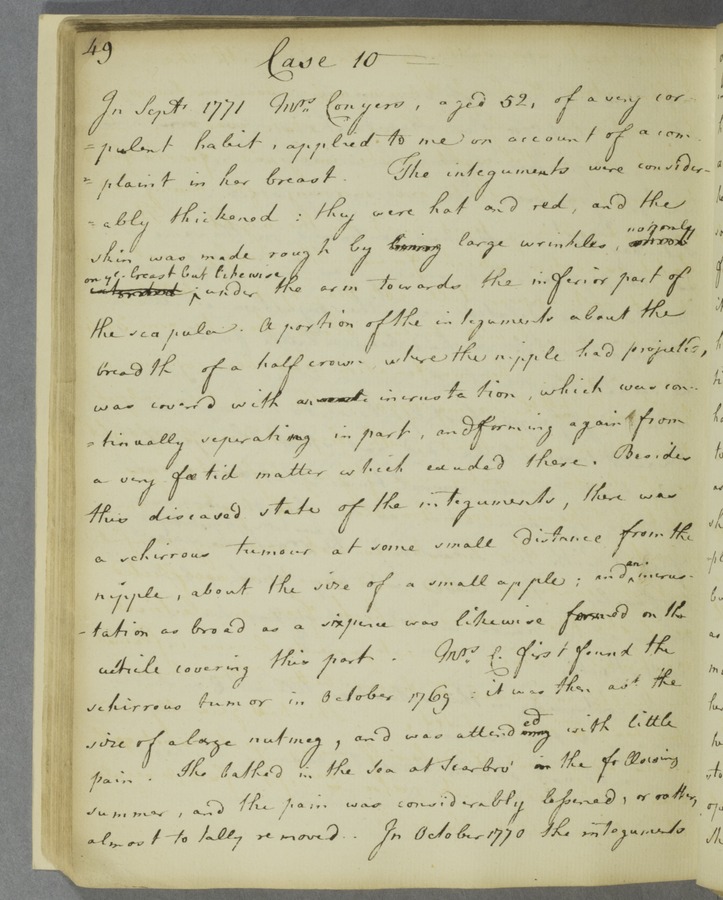 49
Case 10
In Sept.r 1771 Mrs. Conyers, aged 52, of a very cor
=pulent habit, applied to me on account of a com
=plaint in her breast. The integuments were consider-
=ably thickened: they were hot and red, and the
skin was made rough by large wrinkles, not only
on ye. breast but likewise under the arm towards the inferior part of
the scapula. A portion of the integuments about the
breadth of a half crown where the nipple had projected,
was covered with an incrustation, which was con-
=tinually seperating in part, and forming again from
a very fœtid matter which exuded there. Besides
this diseased state of the integuments, there was
a schirrous tumour at some small distance from the
nipple, about the size of a small apple; and an incrus-
-tation as broad as a sixpence was likewise formed on the
cuticle covering this part. Mrs. C. first found the
schirrous tumor in October 1769: it was then abt. the
size of a large nutmeg, and was attended with little
pain. She bathed in the sea at Scarbro' in the following
summer, and the pain was considerably lessened, or rather,
almost totally removed. In October 1770 the integuments